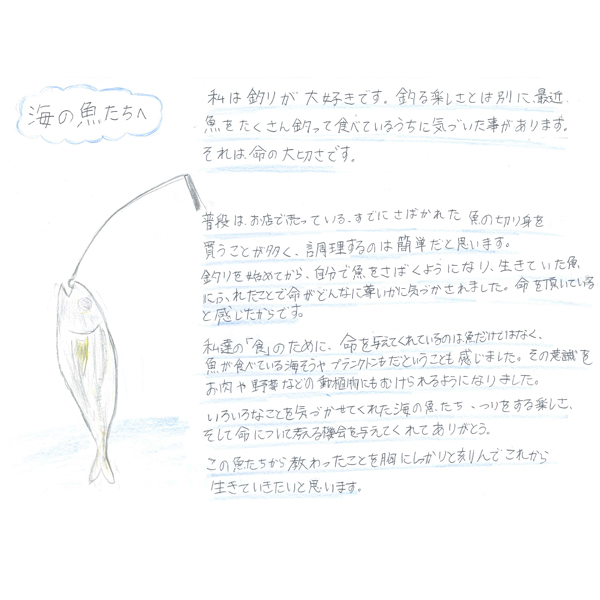 海の魚たちへ
私は釣りが大好きです。釣る楽しさとは別に、最近、
魚をたくさん釣って食べているうちに気づいた事があります。
それは命の大切さです。
普段は、お店で売っている、すでにさばかれた魚の切り身を
買うことが多く、調理するのは簡単だと思います。
釣りを始めてから、自分で魚をさばくようになり、生きていた魚
にふれたことで命がどんなに尊いかに気づかされました。命を頂いている
と感じたからです。
私達の「食」のために、命を与えてくれているのは魚だけではなく、
魚が食べている海そうやプランクトンもだということも感じました。その意識を
お肉や野菜などの動植物にもむけられるようになりました。
いろいろなことを気づかせてくれた海の魚たち、つりをする楽しさ、
そして命について考える機会を与えてくれてありがとう。
この魚たちから教わったことを胸にしっかりと刻んでこれから
生きていきたいと思います。